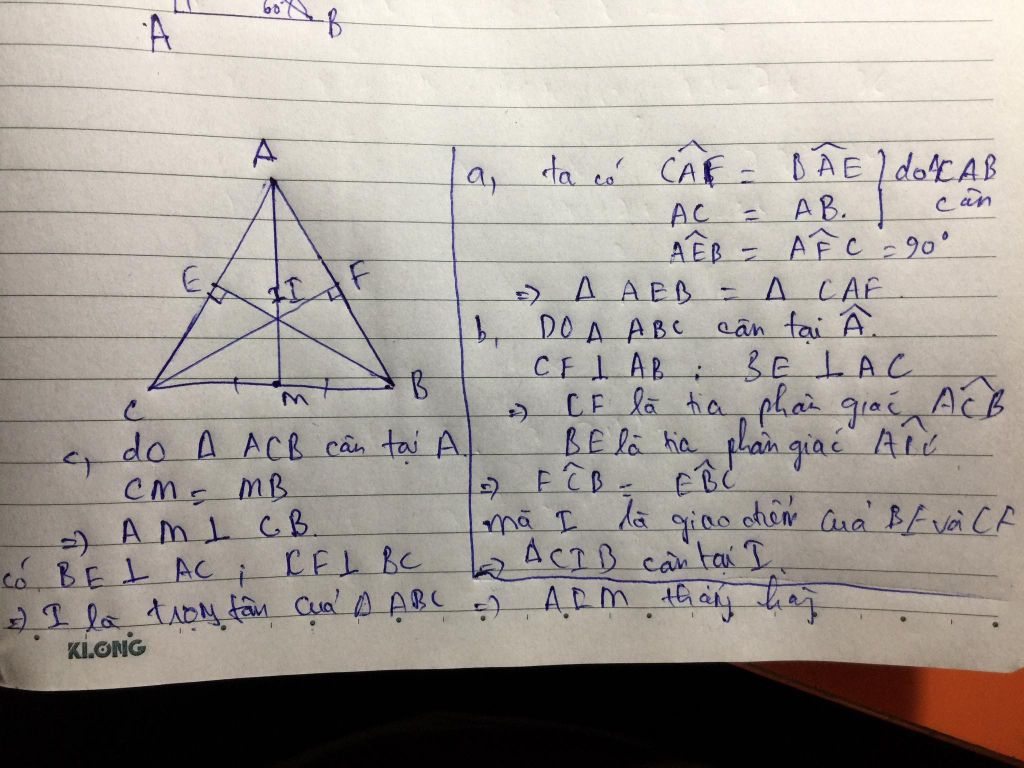 60°
A
B
A
E
I
F
C
M
B
a, ta có CÂF = BÂE } do Δ CAB cân
AC = AB.
AÊB = AF̂C = 90°
=> Δ AEB = Δ CAF.
b, DO Δ ABC cân tại Â.
CF ⊥ AB ; BE ⊥ AC
=> CF là tia phân giác AĈB
BE là tia phân giác
=> FĈB = EB̂C
mà I là giao điểm của BE và CF
=> Δ CIB cân tại I.
c, do Δ ACB cân tại A.
CM = MB
=> AM ⊥ CB.
có BE ⊥ AC ; CF ⊥ BC
=> I là trọng tâm của Δ ABC => AIM thẳng hàng
KLONG